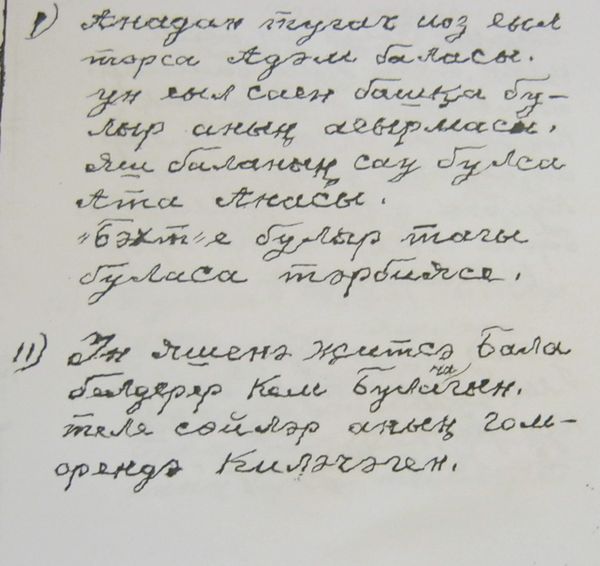 1) Анадан тугач йоз еыл
торса Адәм баласы.
ун еыл саен башка бу-
лыр аның аерырмасы.
яш баланың сау булса
Ата Анасы.
"Бәхт"е булыр тагы
буласа тәрбиясе.
11) Ун яшенә җитсә Бала
белдерер Кем Булачагын.
теле сөйләр аның гом-
орендә Киләчәген.